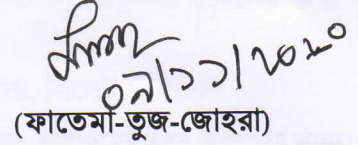 ০৯/১১/২০২০
(ফাতেমা-তুজ-জোহরা)